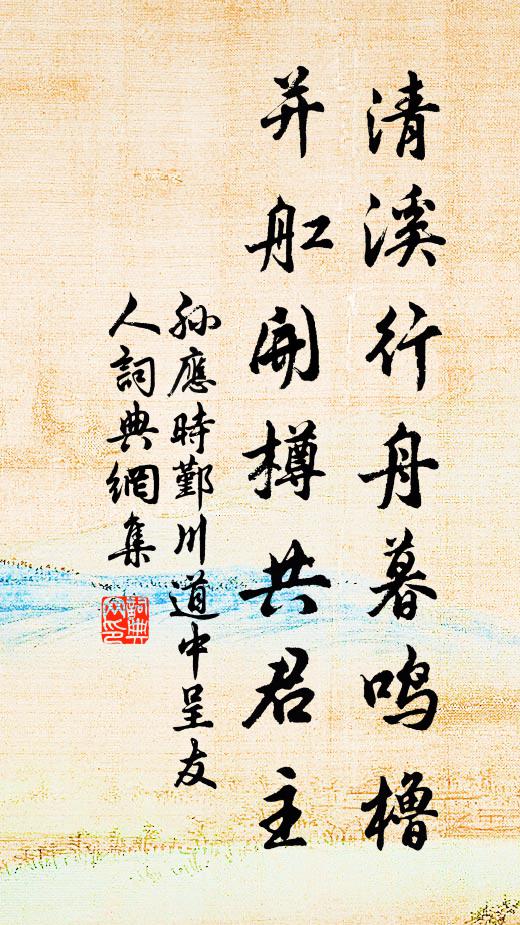 清溪行舟暮鸣橹
并舡开樽共君主
孙應時鄞川道中呈友
人詞典網集
詞典